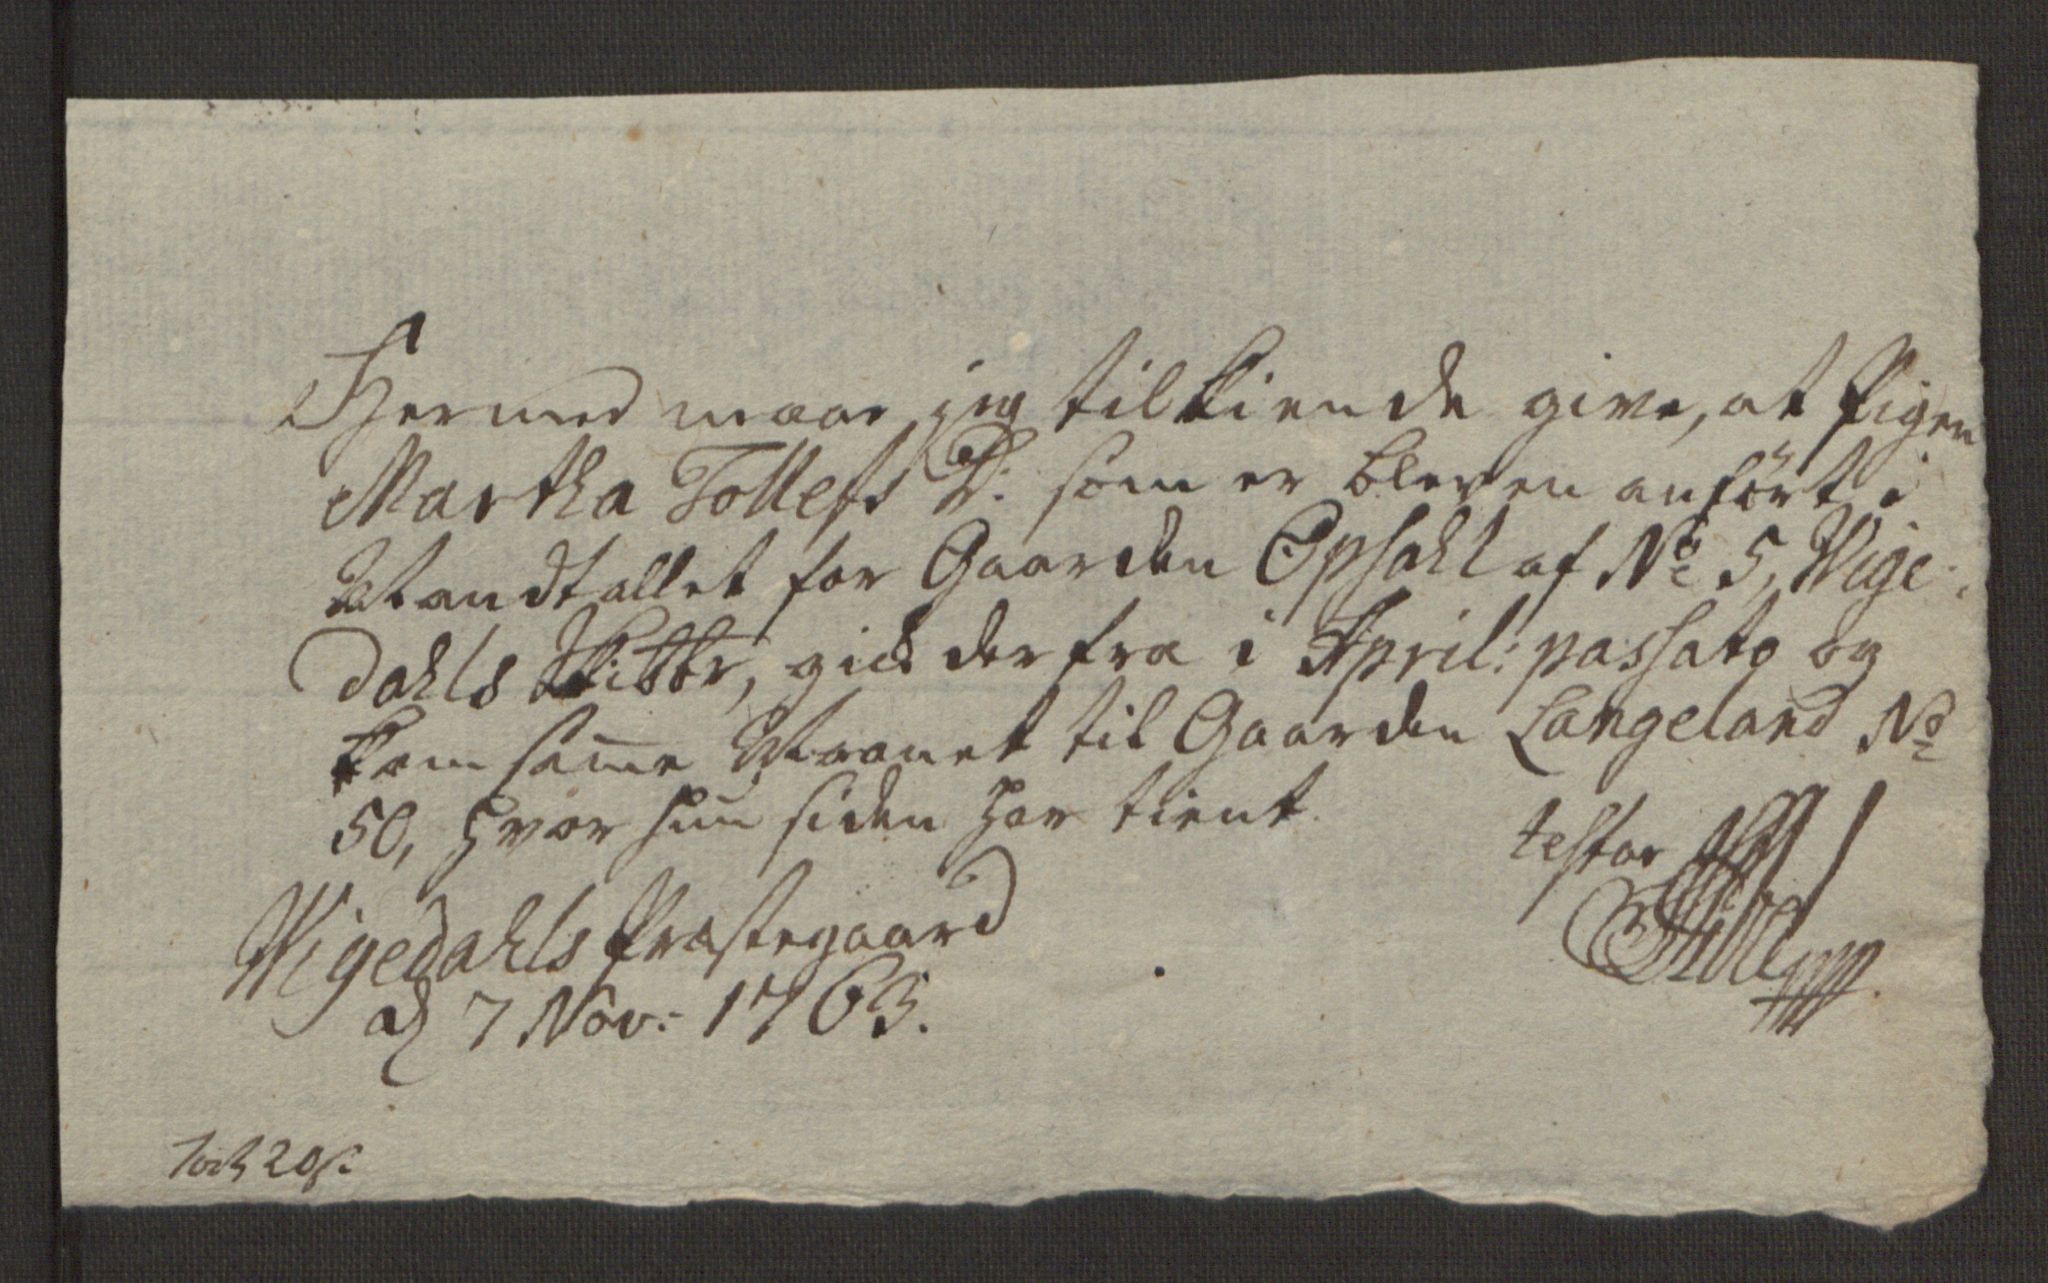 Hermed maae jeg tilkiende give, at Pigen
Martha Tollefs D: som er bleven anført i
Mandtallet for Gaarden Opsahl af No 5, Wige-
dahls Skibbr, gick der fra i April: passato og
kom samme Maanet til Gaarden Langeland No
50, hvor hun siden har tient.
testor
Wigedahls Præstegaard
d 7 Nov: 1763.
20 s: